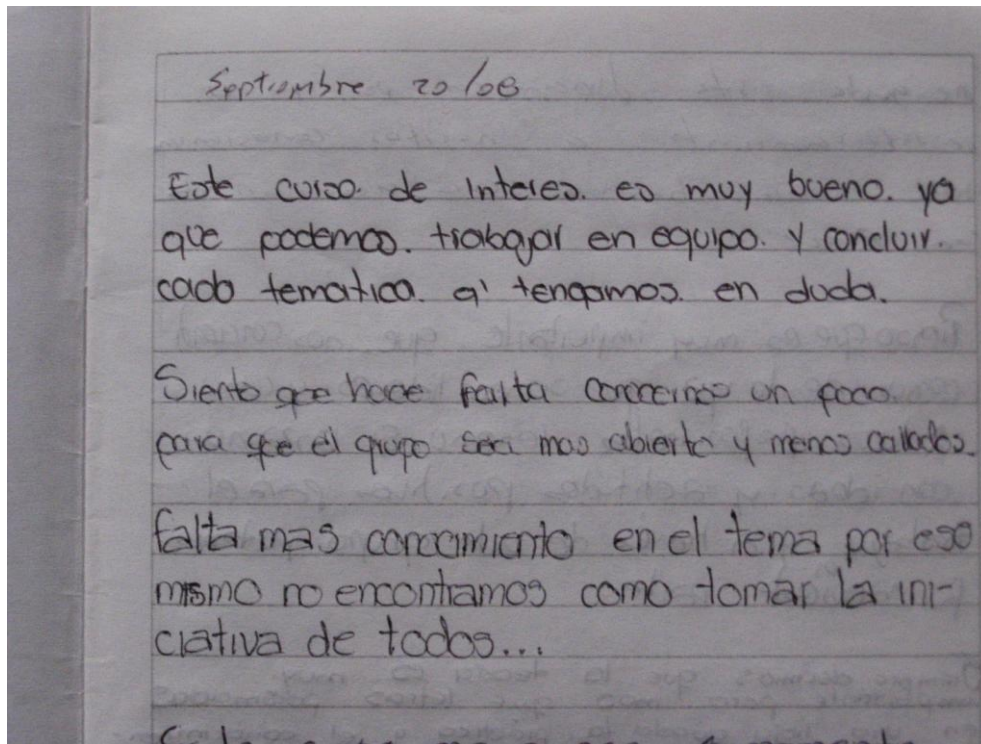 Septiembre 20/08
Este curso. de interes. es muy bueno. ya
que podemos. trabajar en equipo. y concluir.
cada tematica. q' tengamos. en duda.
Siento que hace falta conocernos un poco.
para que el grupo sea mas abierto y menos callados.
falta mas conocimiento en el tema por eso
mismo no encontramos como tomar la ini-
ciativa de todos...